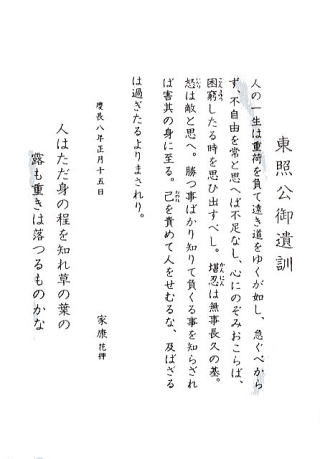 東照公御遺訓
人の一生は重荷を負て遠き道をゆくが如し、急ぐべから
ず、不自由を常と思へば不足なし、心にのぞみおこらば、
困窮したる時を思ひ出すべし。堪忍は無事長久の基。
怒は敵と思へ。勝つ事ばかり知りて負くる事を知らざれ
ば害其の身に至る。己を責めて人をせむるな、及ばざる
は過ぎたるよりまされり。
慶長八年正月十五日
家康 花押
人はただ身の程を知れ草の葉の
露も重きは落つるものかな